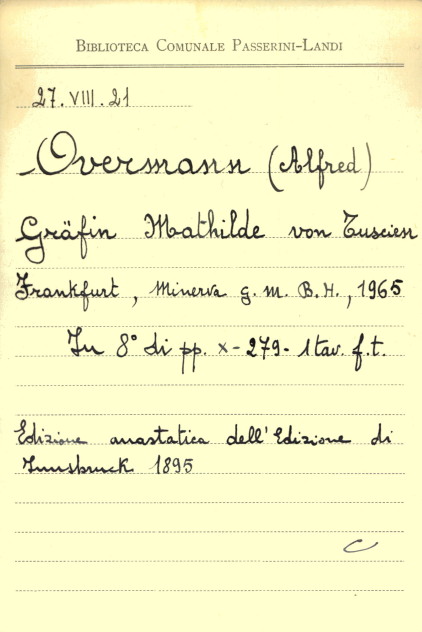 BIBLIOTECA COMUNALE PASSERINI-LANDI
27. VIII. 21
Overmann (Alfred)
Gräfin Mathilde von Tuscien
Frankfurt, Minerva g. m. B. H., 1965
In 8° di pp. x-279- 1 tav. f.t.
Edizione anastatica dell'Edizione di
Innsbruck 1895
C